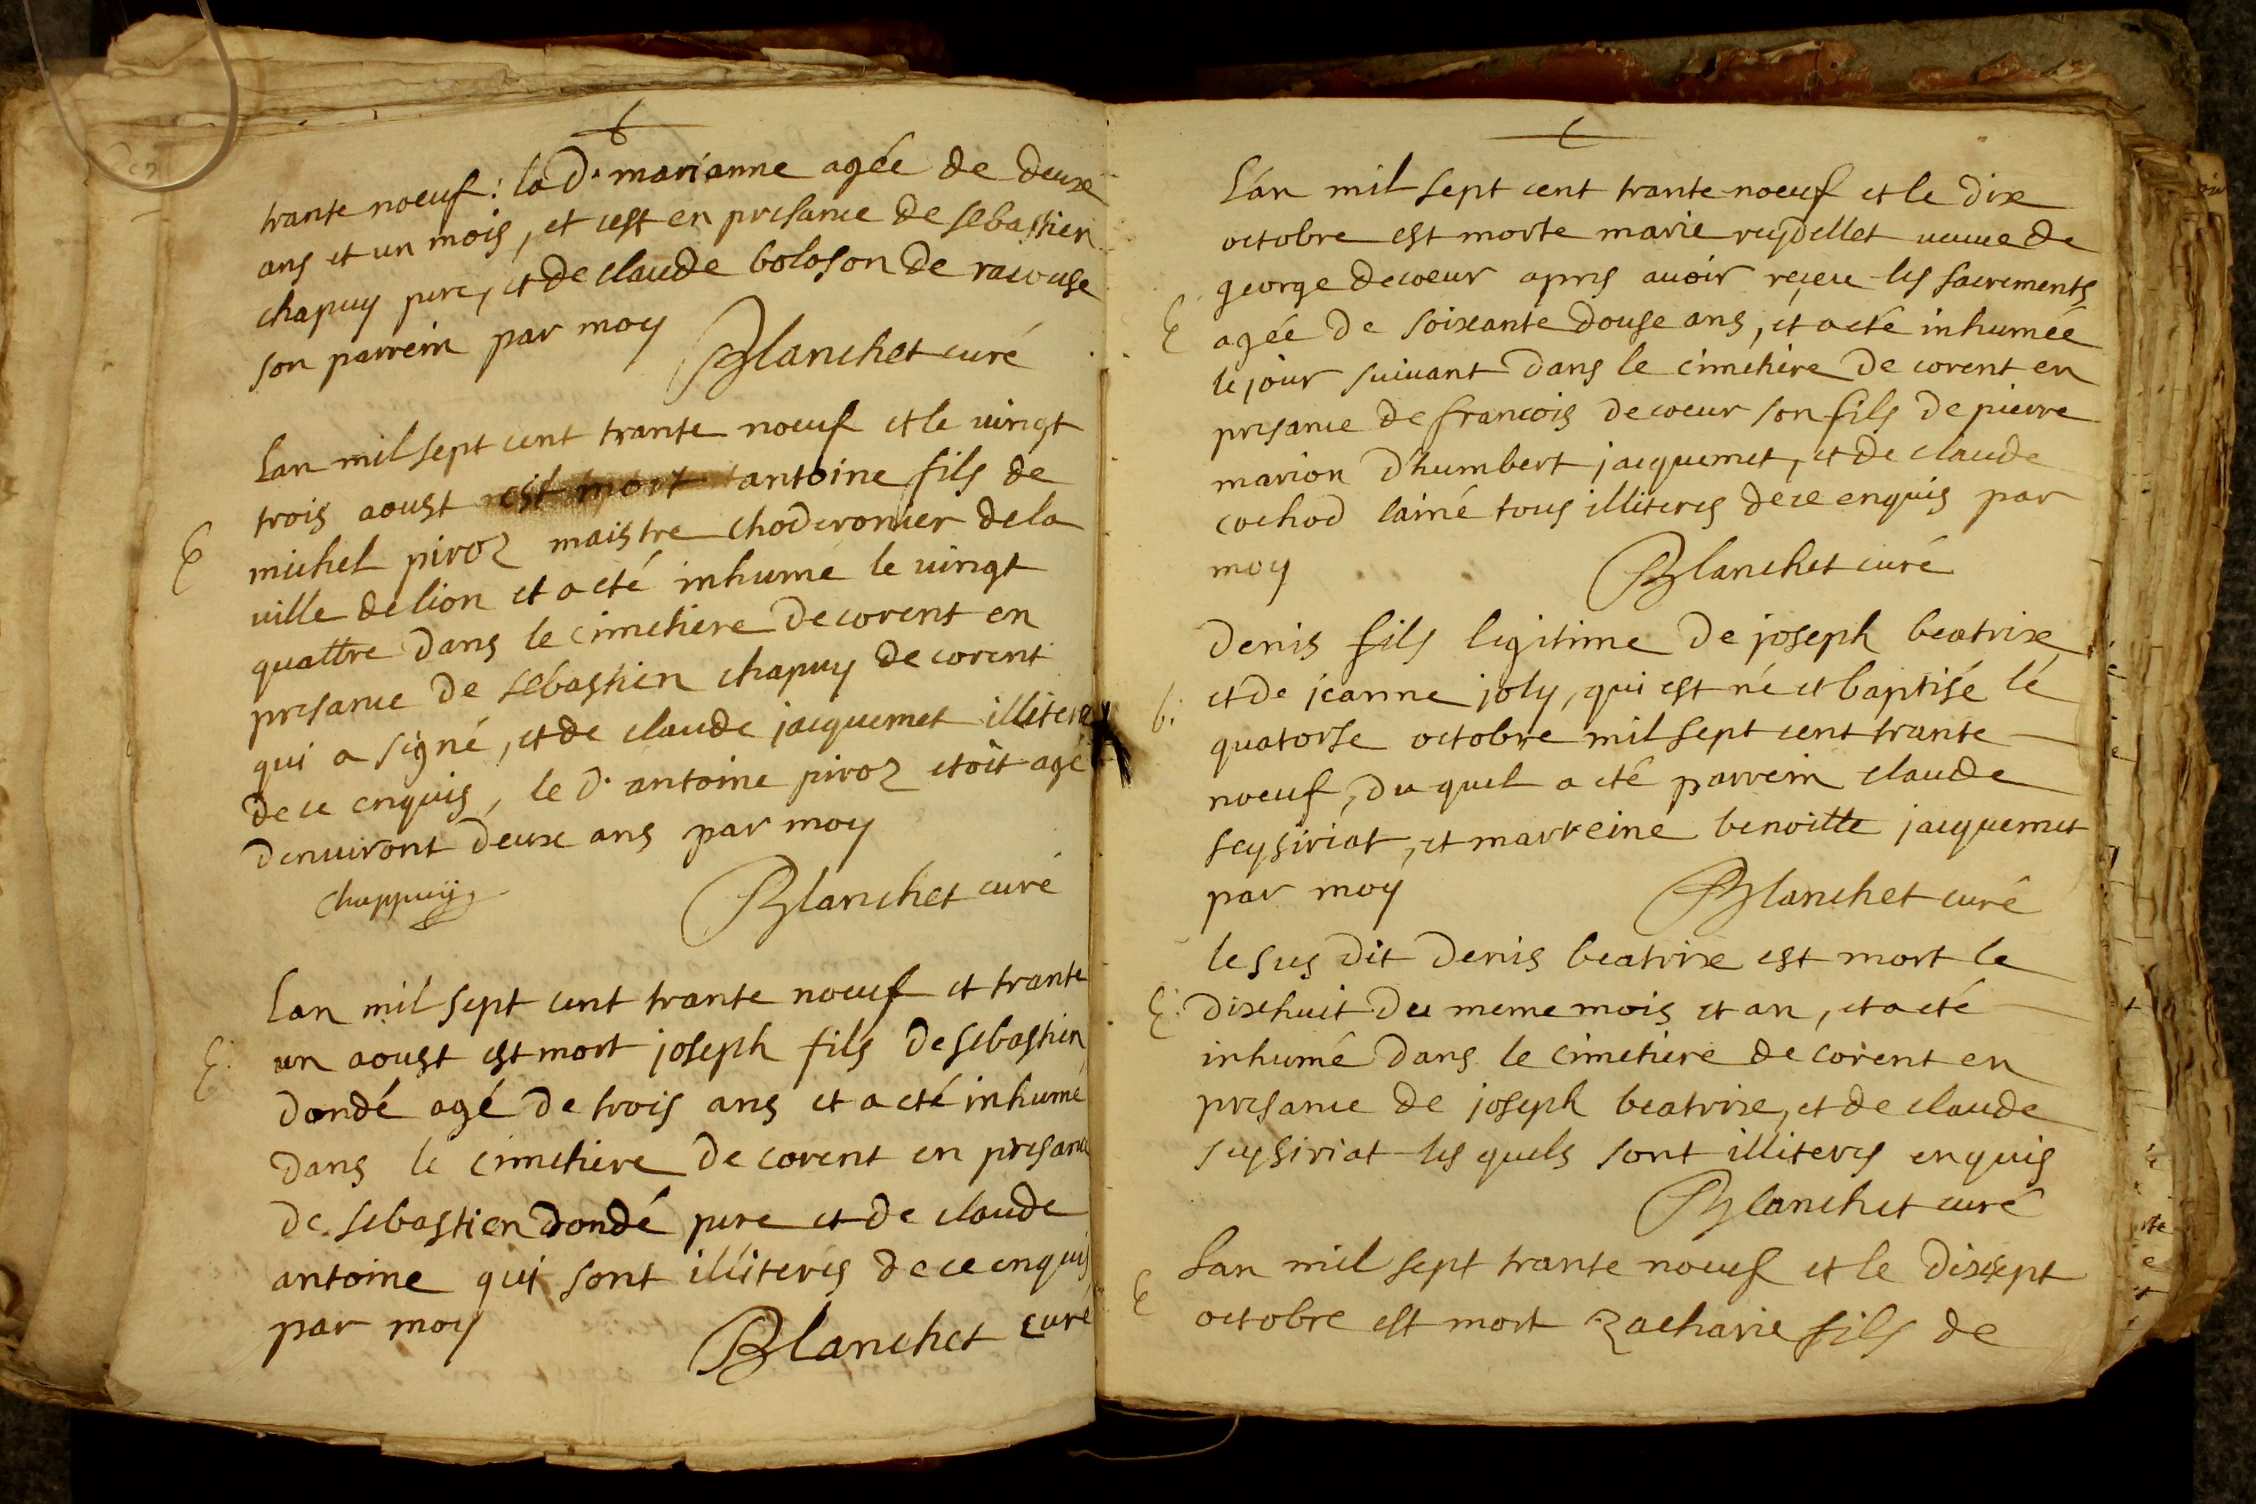 trante noeuf: la d. marianne agée de deuxe
ans et un mois, et cest en presance de sebastien
chapuy pere, et de claude boloson de racouse
son parrein par moy
Blanchet curé
Lan mil sept cent trante noeuf et le vingt
trois aoust est mort antoine fils de
E michel piroz maistre choderonier de la
ville de lion et a eté inhumé le vingt
quattre dans le cimetiere de corent en
presance de sebastien chapuy de corent
qui a signé, et de claude jacquemet illitere
de ce enquis, le d. antoine piroz etoit agé
denuiront deuxe ans par moy
Chappuy
Blanchet curé
Lan mil sept cent trante noeuf et trante
E. un aoust est mort joseph fils de sebastien
dondé agé de trois ans et a eté inhumé
dans le cimetiere de corent en presance
de sebastien dondé pere et de claude
antoine qui sont illiteres de ce enquis
par moy
Blanchet curé
L'an mil sept cent trante noeuf et le dixe
octobre est morte marie reydellet veuve de
george decoeur apres auoir reçeu les sacrements
E agée de soixante douse ans, et a eté inhumée
le jour suiuant dans le cimetiere de corent en
presance de francois decoeur son fils de pierre
marion d'humbert jacquemet, et de claude
cochod lainé tous illiteres de ce enquis par
moy
Blanchet curé
Denis fils legitime de joseph beatrixe
b. et de jeanne joly, qui est né et baptisé lé
quatorse octobre mil sept cent trante
noeuf, du quel a eté parrein claude
seysiriat, et marreine benoitte jacquemet
par moy
Blanchet curé
le sus dit denis beatrixe est mort le
E. dixehuit du meme mois et an, et a eté
inhumé dans le cimetiere de corent en
presance de joseph beatrixe, et de claude
seysiriat les quels sont illiteres enquis
Blanchet curé
Lan mil sept trante noeuf et le dixsept
E octobre est mort zacharie fils de